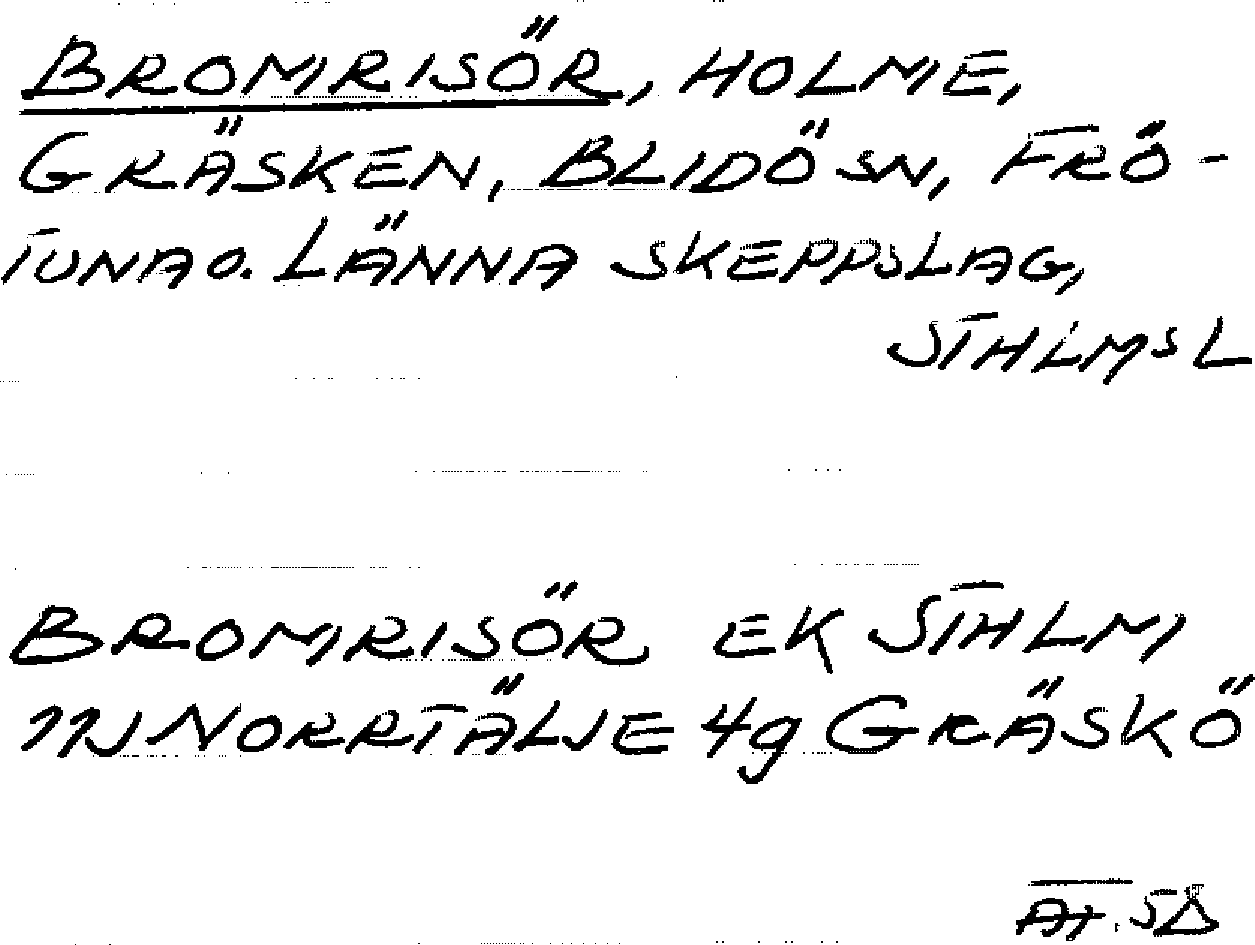 BROMRISÖR, HOLME,
GRÄSKEN, BLIDÖ SN, FRÖ-
TUNA O. LÄNNA SKEPPSLAG,
STHLMS L
BROMRISÖR EK STHLM
11J NORRTÄLJE 4g GRÄSKÖ